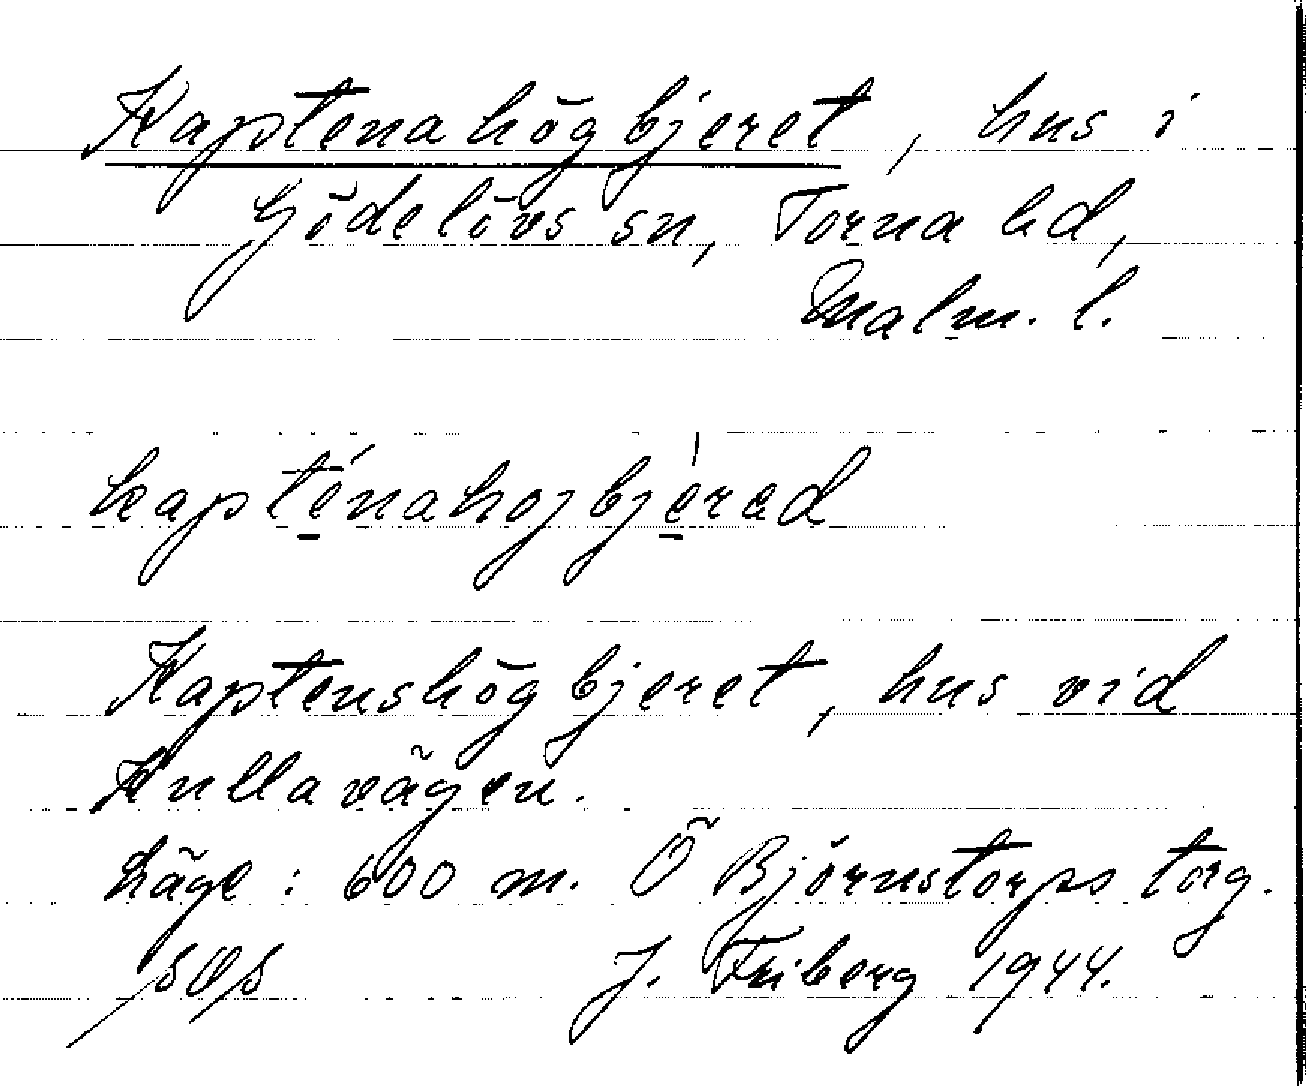 Kaptenahögbjeret, hus i
Gödelövs sn, Torna hd,
Malm. l.
kapténahojbjèrəd
Kaptenshögbjeret, hus vid
Kullavägen.
Läge: 600 m. Ö Björnstorps torg.
J. Friberg 1944.